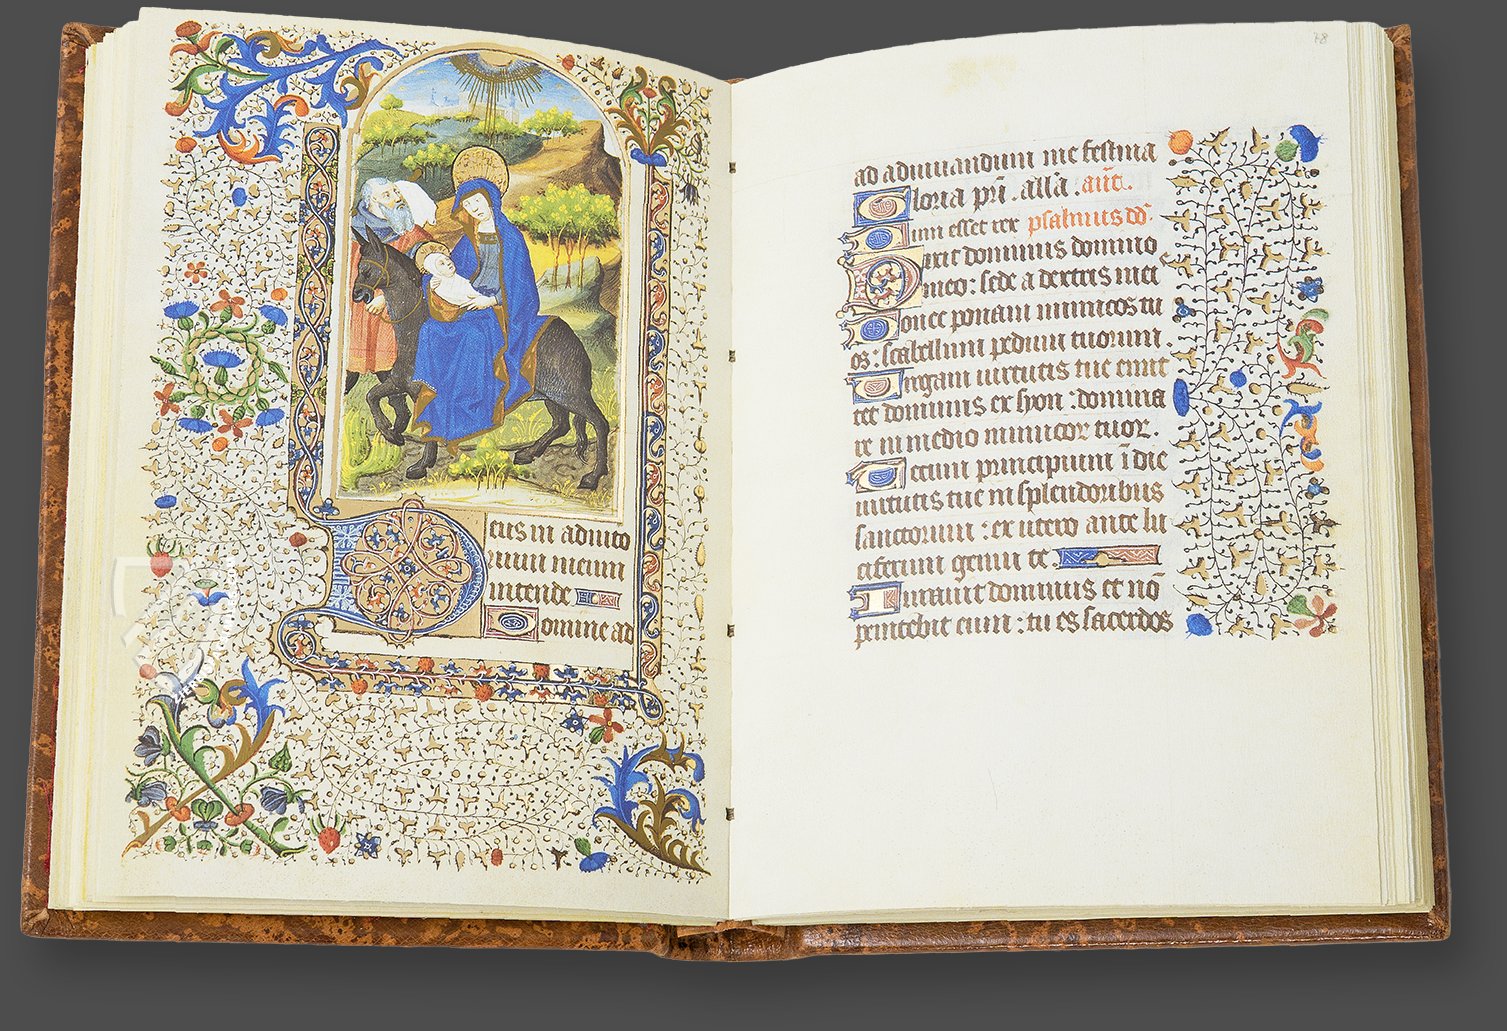 Deus in adiuto
rium meum
intende
Domine ad
78
ad adiuuandum me festina
Gloria pri. alla. ant.
Cum esset rex psalmus dd.
Dixit dominus domino
meo: sede a dextris meis
Donec ponam inimicos tu
os: scabellum pedum tuorum.
Uirgam uirtutis tue emit
tet dominus ex syon: domina
re in medio inimicor tuor.
Tecum principium i die
uirtutis tue in splendoribus
sanctorum: ex utero ante lu
ciferum genui te
Iurauit dominus et no
penitebit eum: tu es sacerdos